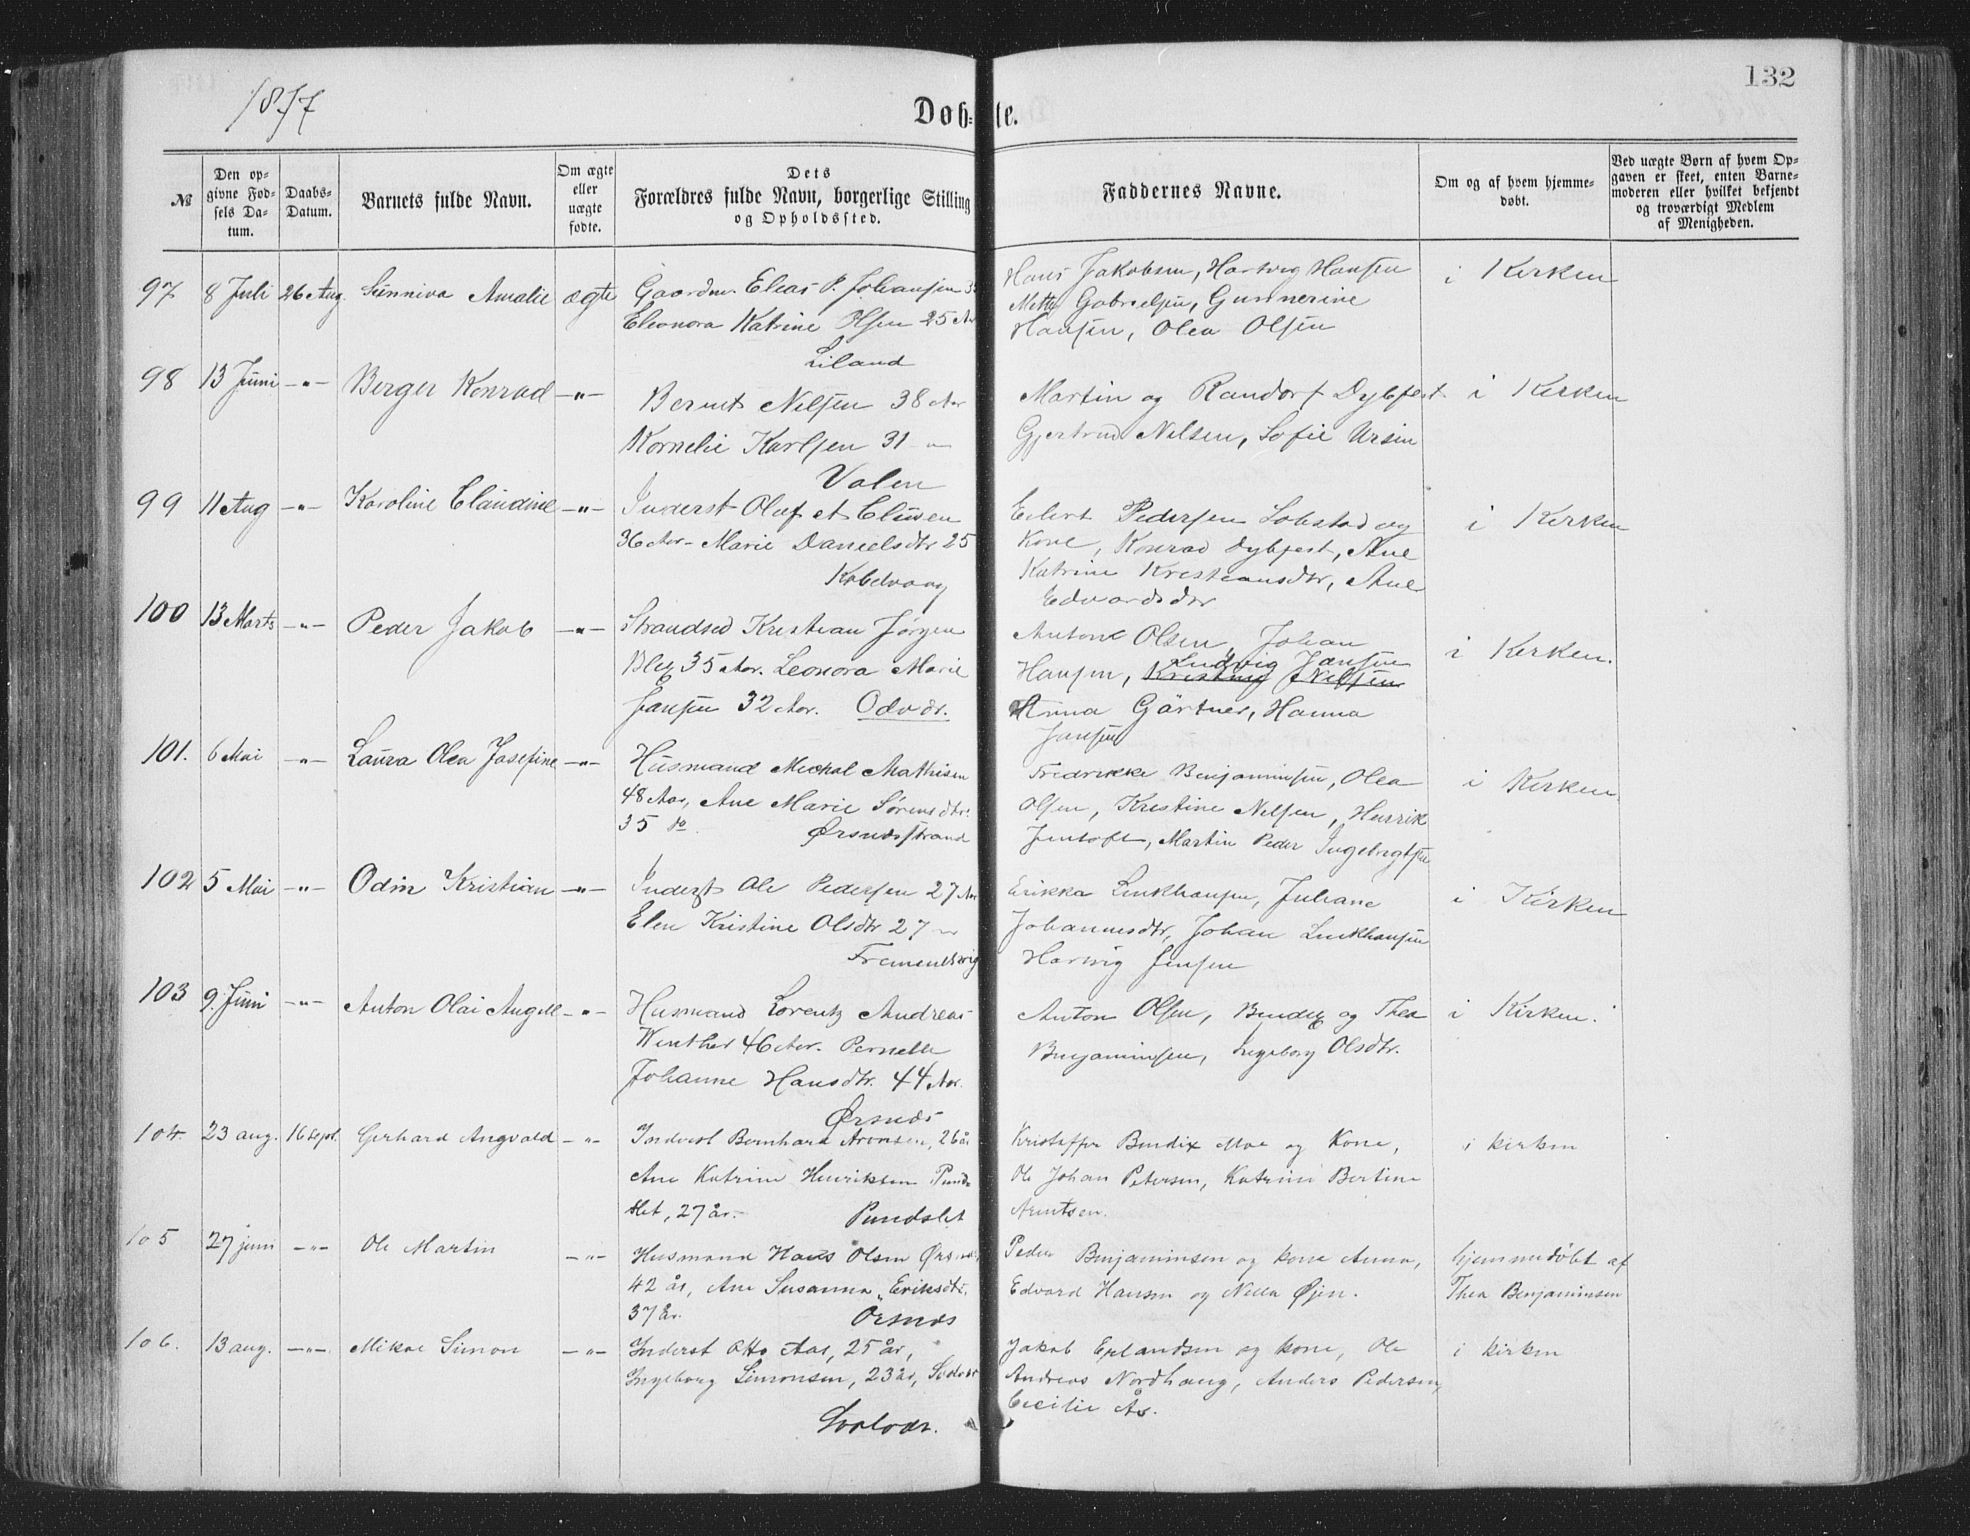 1877
132
Døbte.
№
Den opgivne Fødsels Datum.
Daabs-Datum.
Barnets fulde Navn.
Om ægte eller uægte fødte.
Dets Forældres fulde Navn, borgerlige Stilling og Opholdssted.
Faddernes Navne.
Om og af hvem hjemmedøbt.
Ved uægte Børn af hvem Opgaven er skeet, enten Barnemoderen eller hvilket bekjendt og troværdigt Medlem af Menigheden.
97 8 Juli 26 Aug. Sünniva Amalie ægte Gaardm. Elias P. Johansen
Eleonora Katrine Olsen 25 Aar
Liland
Hans Jakobsen, Hartvig Hansen
Mette Gabrielsen, Gunnerine
Hansen, Olea Olsen
i Kirken
98 13 Juni -"- Berger Konrad -"- Bernt Nilsen 38 Aar
Kornelie Karlsen 31 -"-
Valen
Martin og Randorf Dybfest
Gjertrud Nilsen, Sofie Ursin
i Kirken
99 11 Aug -"- Karoline Claudine -"- Inderst Oluf
36 Aar - Marie Danielsdtr 25
Kabelvaag
Eilert Pedersen Lobstad og
Kone, Konrad Dybfest, Ane
Katrine Kristiansdtr, Ane
Edvardsdtr
i Kirken
100 13 Marts -"- Peder Jakob -"- Strandsid Kristian Jørgen
Blix 35 Aar. Leonora Marie
Jansen 32 Aar. Odvær.
Anton Olsen, Johan
Ludvig Jansen
Hansen, Kristing Nilsen
Anna Gärtner, Hanna
Jansen
i Kirken.
101. 6 Mai -"- Laura Olea Josefine -"- Husmand Mickal Mathisen
48 Aar, Ane Marie Sørensdtr.
35 do. Ørsnesstrand
Fredrikke Benjaminsen, Olea
Olsen, Kristine Nilsen, Henrik
Jentoft, Martin Peder Ingebrigtsen
i Kirken.
102 5 Mai -"- Odin Kristian -"- Inderst Ole Pedersen 27 Aar
Elen Kristine Olsdtr 27 -"-
Erikka Linkhausen, Juliane
Johannesdtr, Johan Linkhausen
Harvig Jensen
i Kirken
103 9 Juni -"- Anton Olai Angell -"- Husmand Lorentz Andreas
Winther 46 Aar. Pernelle
Johanne Hansdtr. 44 Aar.
Ørsnæs
Anton Olsen, Bendix og Thea
Benjaminsen, Ingeborg Olsdtr.
i Kirken.
104. 23 aug. 16 Sept. Gerhard Angvald -"- Inderst Bernhard Aronsen, 26 år
Ane Katrine Henriksen Punds
let, 27 år. Pundslet
Kristoffer Bendix Moe og Kone,
Ole Johan Petersen, Katrine Bertine
Arntsen.
i kirken
105 27 juni -"- Ole Martin -"- Husmand Hans Olsen Ørsnes
42 år, Ane Susanna Eriksdtr.
37 år. Ørsnes
Peder Benjaminsen og kone Anna,
Edvard Hansen og Nella Øjen.
hjemmedøbt af
Thea Benjaminsen
106. 13 aug. -"- Mikal Simon -"- Inderst Otto Aas, 25 år,
Ingeborg Simonsen, 23 år, Svolvær
Svolvær.
Jakob Erlandsen og kone, Ole
Andreas Nordhaug, Anders Pedersen,
Cecilie Ås.
i kirken